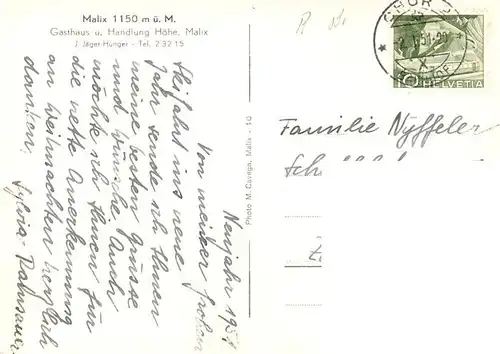 Malix 1150 m ü. M.
Gasthaus u. Handlung Höhe, Malix
J. Jäger-Hunger - Tel. 2 32 15
Neujahr 1951
Von meiner frohen
Skifahrt ins neue
Jahr sende ich Ihnen
meine besten Grüsse
und Wünsche. Auch
möchte ich Ihnen für
die nette Anerkennung
an Weihnachten herzlich
danken.
Sylvia
Photo M. Cavega, Malix - 10
CHUR
HELVETIA
Familie Nyffeler